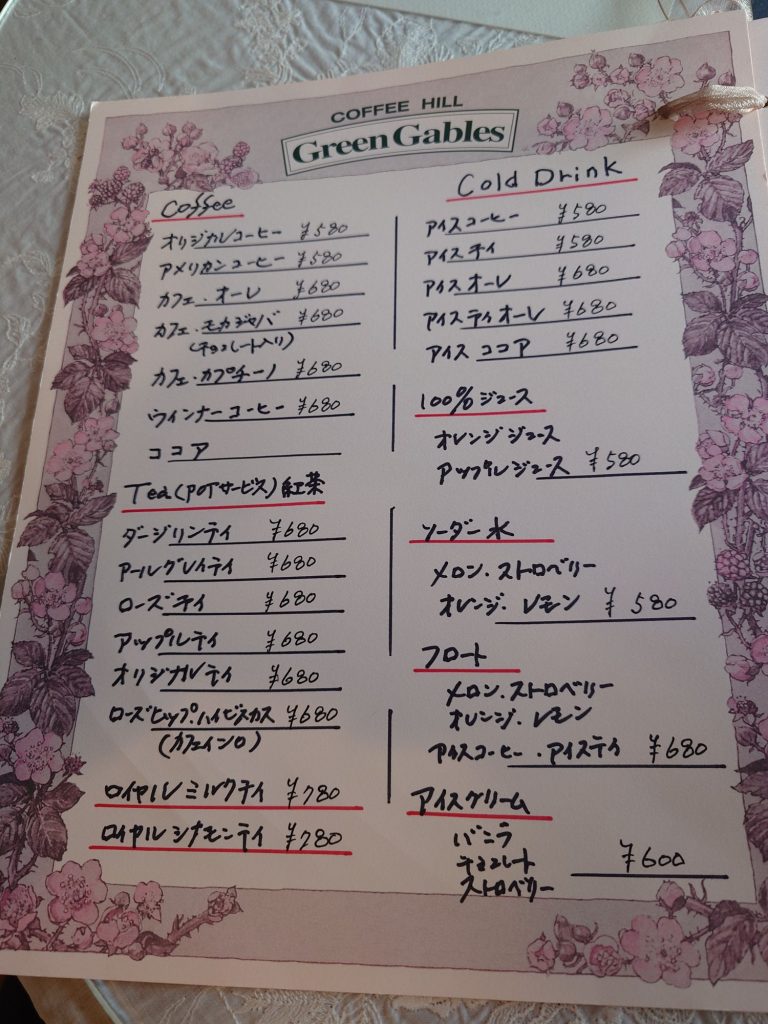 COFFEE HILL
Green Gables
Coffee
オリジナルコーヒー ¥580
アメリカンコーヒー ¥580
カフェ・オーレ ¥680
カフェ・モカジャバ ¥680
(チョコレート入り)
カフェ・カプチーノ ¥680
ウィンナーコーヒー ¥680
ココア
Tea(POTサービス)紅茶
ダージリンティ ¥680
アールグレイティ ¥680
ローズティ ¥680
アップルティ ¥680
オリジナルティ ¥680
ローズヒップ・ハイビスカス ¥680
(カフェイン0)
ロイヤルミルクティ ¥780
ロイヤルシナモンティ ¥780
Cold Drink
アイスコーヒー ¥580
アイスティ ¥580
アイスオーレ ¥680
アイスティオーレ ¥680
アイスココア ¥680
100%ジュース
オレンジジュース
アップルジュース ¥580
ソーダー水
メロン・ストロベリー
オレンジ・レモン ¥580
フロート
メロン・ストロベリー
オレンジ・レモン
アイスコーヒー・アイスティ ¥680
アイスクリーム
バニラ
チョコレート ¥600
ストロベリー